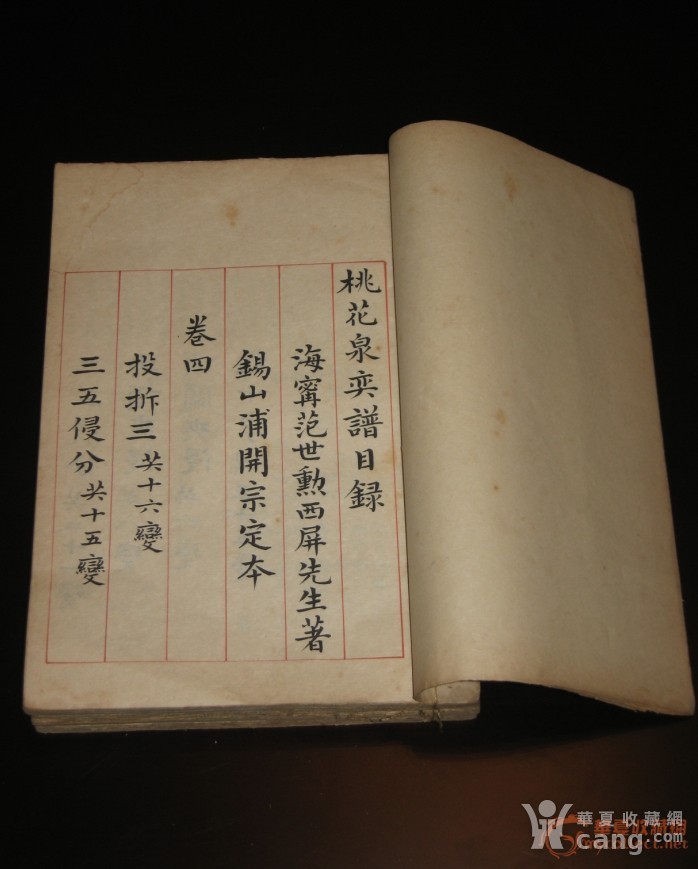 桃花泉奕譜目録
海甯范世勳西屏先生著
錫山浦開宗定本
卷四
投拆三 共十六變
三五侵分 共十五變
華夏收藏網
cang.com